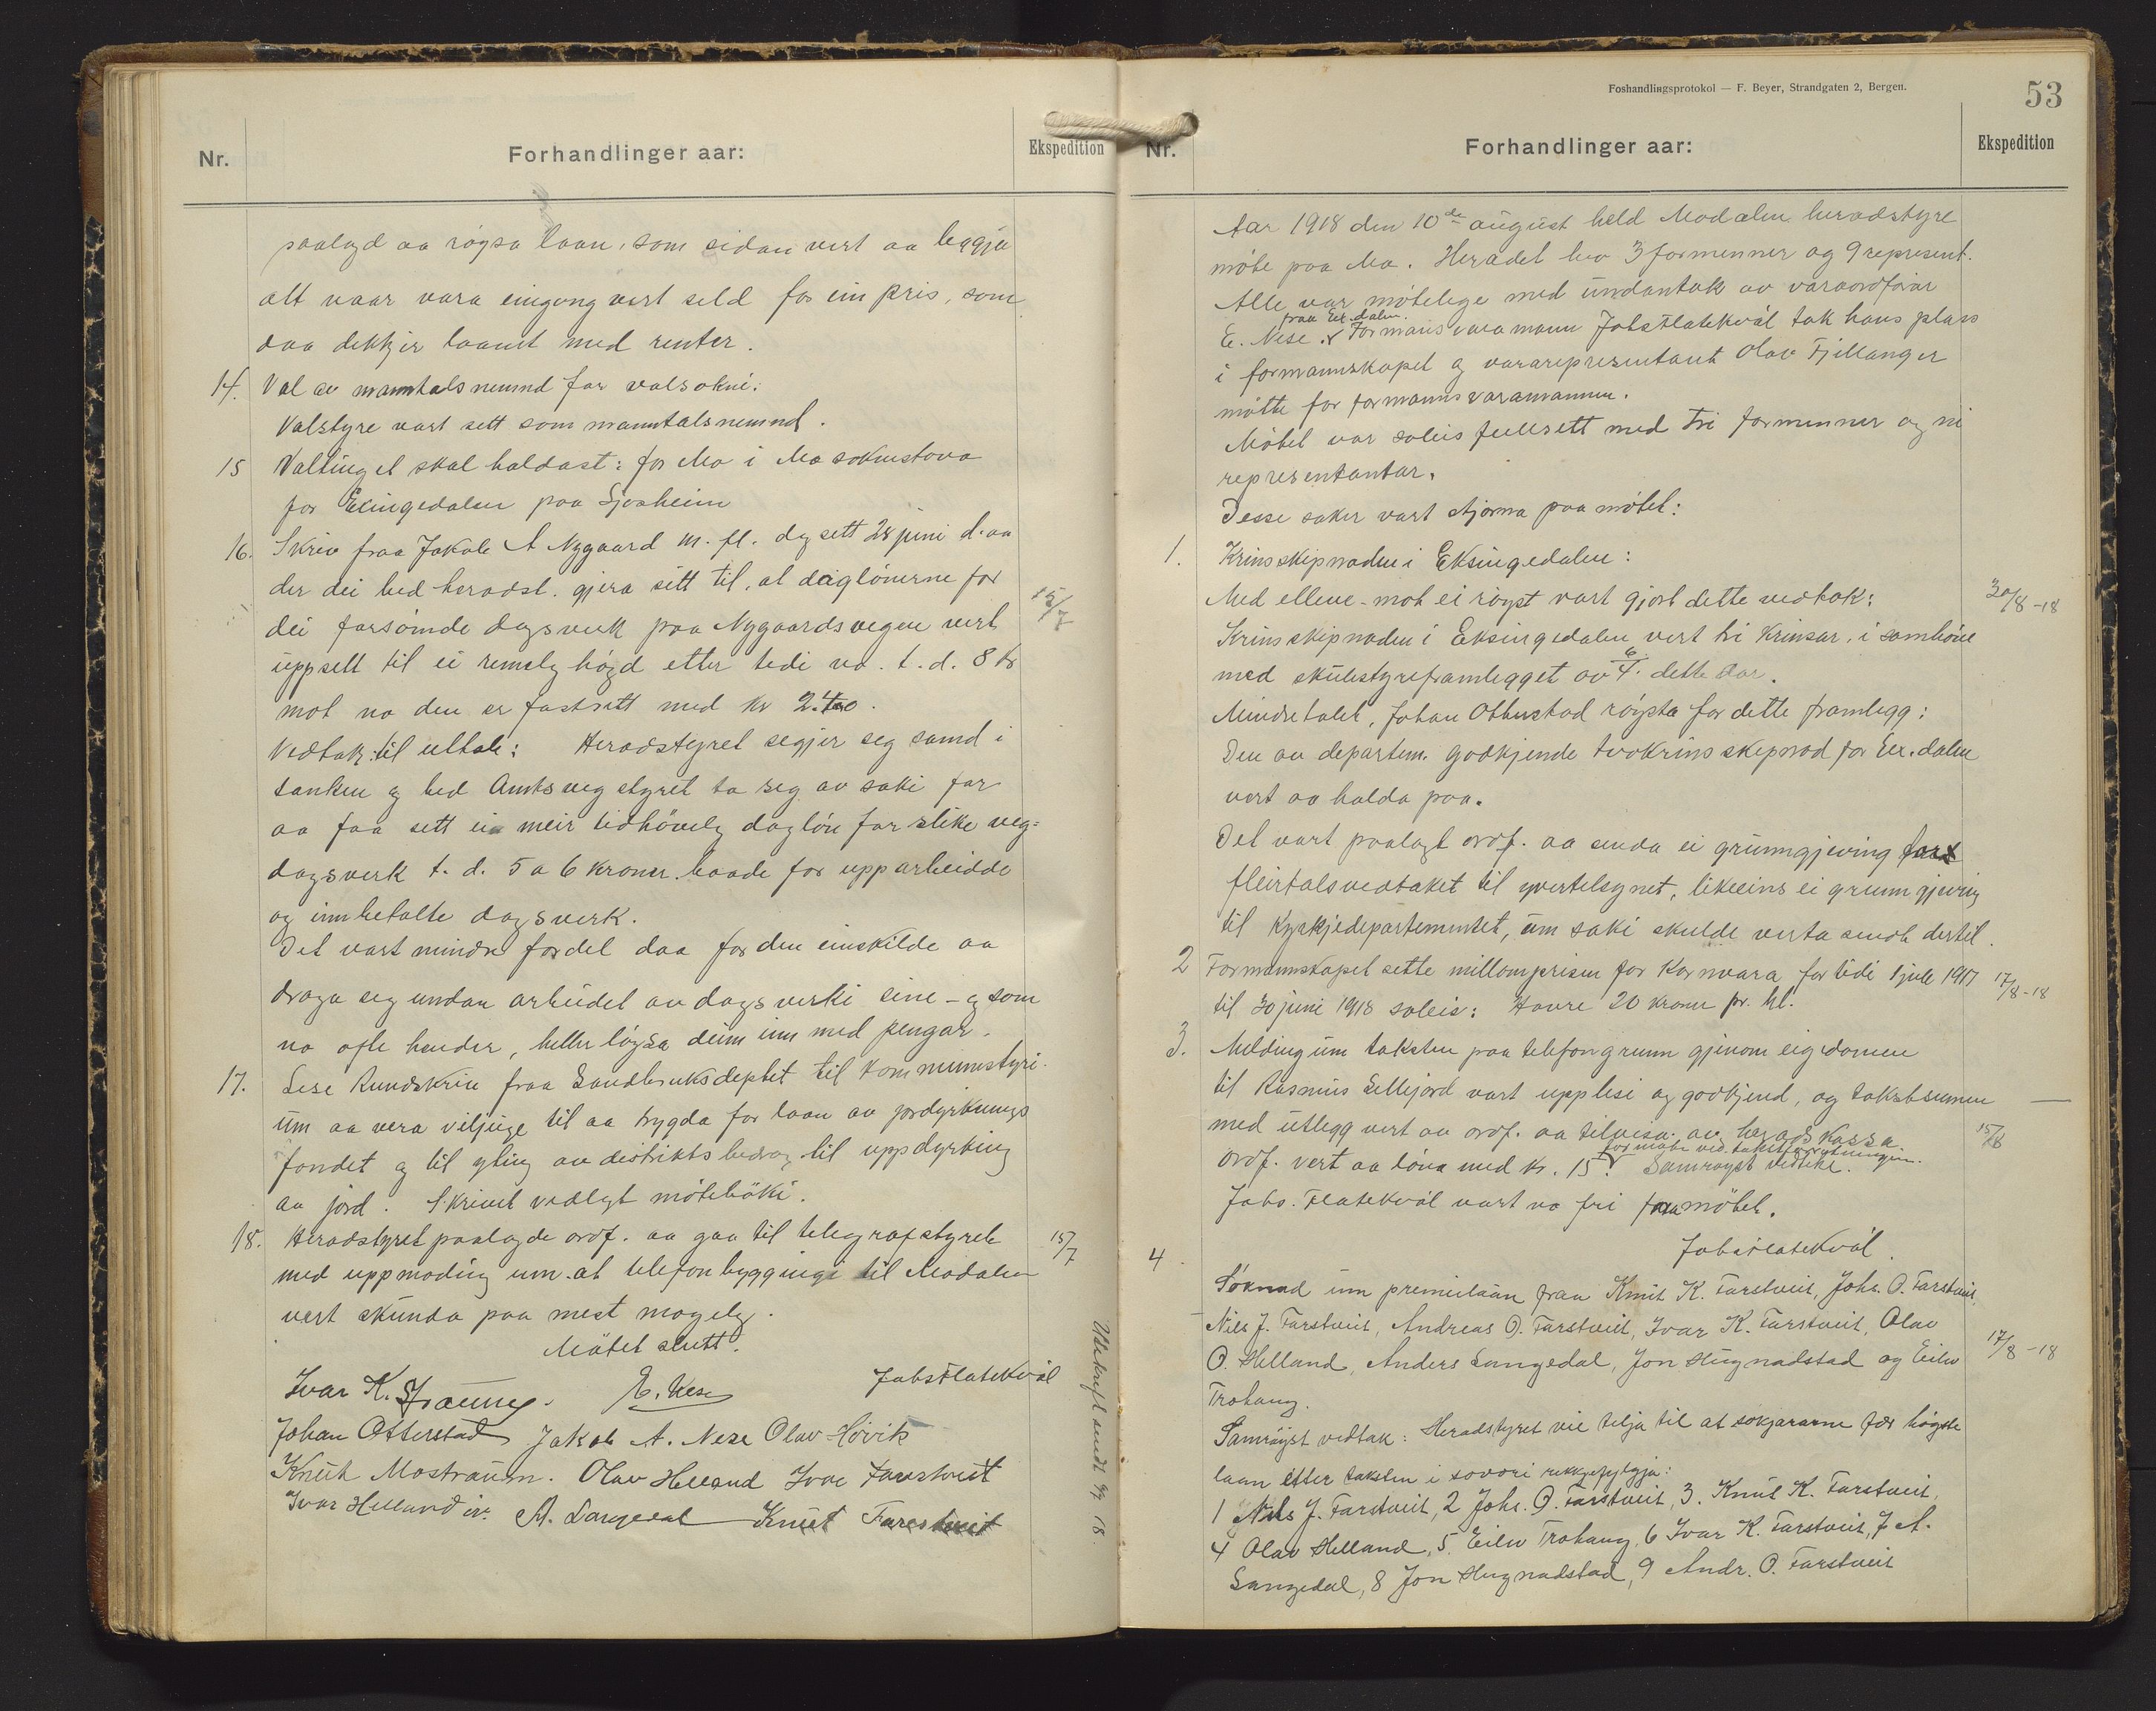 Nr.
Forhandlinger aar:
Ekspedition
paalagd aa røysa laan, som sidan vert aa leggja
att naar vara eingong vert seld for ein pris, som
daa dekkjer laanet med renter.
14. Val av manntalsnemnd for valsokni:
Valstyre vart sett som manntalsnemnd.
15 Valtinget skal haldast: for Mo i Mo soknestova
for Exingedalen paa Sjosheim
16. Skriv fraa Jakob A Nygaard m. fl. dagsett 28 juni d. aa
der dei bed heradst. gjera sitt til, at daglønerne for
dei forsømde dagsverk paa Nygaardsvegen vert
uppsett til ei rimeleg høgd etter tidi no. t. d. 8 kr
mot no den er fastsett med kr 2.40.
15/7
Vedtak til uttale: Heradstyret segjer seg samd i
tanken og bed Amtsvegstyret ta seg av saki for
aa faa sett ei meir tidhøveleg dagløn for slike veg=
dagsverk t. d. 5 a 6 kroner baade for upparbeidde
og innbetalte dagsverk.
Det vart mindre fordel daa for den einskilde aa
draga seg undan arbeidet av dagsverki sine - og som
no ofte hender, heller løysa deim inn med pengar.
17. Lese Rundskriv fraa Landbruksdeptet til kommunestyri
um aa vera viljuge til aa trygda for laan av jordyrkings
fondet og til yting av distriktsbedrag til uppdyrking
av jord. Skrivet vedlagt møtebøki.
18. Heradstyret paalagde ordf. aa gaa til telegrafstyret
med uppmoding um at telefonbyggingi til Modalen
vert skunda paa mest mogeleg.
15/7
Møtet slutt.
Ivar K. Straume. E. Nese Johs Flatekvål
Johan Otterstad Jakob A. Nese Olav Høvik
Knut Mostraum. Olav Helland Ivar Farestveit
Ivar Helland A. Langedal Knut Farestveit
Utskrift sendt 18.
Foshandlingsprotokol — F. Beyer, Strandgaten 2, Bergen.
53
Nr.
Forhandlinger aar:
Ekspedition
Aar 1918 den 10de august held Modalen heradstyre
møte paa Mo. Heradet hev 3 formenner og 9 represent.
Alle var møtelege med undantak av varaordførar
fraa Ex.dalen.
E. Nese. Formans varamann Johs Flatekvål tok hans plass
i formannskapet og vararepresentant Olav Fjellanger
møtte for formanns varamannen.
Møtet var soleis fullsett med tri formenner og ni
representantar.
Desse saker vart avgjorna paa møtet:
1. Krinsskipnaden i Eksingedalen:
Med elleve mot ei røyst vart gjort dette vedtak:
30/8-18
Krinsskipnaden i Eksingedalen vert tri krinsar, i samhøve
med skulestyreframlegget av 6/4. dette aar.
Mindretalet, Johan Otterstad røysta for dette framlegg:
Den av departem. godkjende tvokrinsskipnad for Ex.dalen
vert aa halda paa.
Det vart paalagt ordf. aa senda ei grunngjeving for
fleirtalsvedtaket til yvertilsynet, likeeins ei grunngjeving
til Kyrkjedepartementet, um saki skulde verta sendt dertil.
2 Formannskapet sette millomprisen for kornvara for tidi 1 juli 1917
til 30 juni 1918 soleis: Havre 20 kroner pr. hl.
17/8-18
3. Melding um taksten paa telefongrunn gjenom eigedomen
til Rasmus Sellejord vart upplesi og godkjend, og takstsumen
med utlegg vert av ordf. aa tilvisa av heradskassa.
15/8
for møte ved takstforretningen.
Ordf. vert aa løna med kr. 15 Samrøyst vedteke.
Johs. Flatekvål vart no fri fraa møtet.
Johs Flatekvål.
4.
Søknad um premielaan fraa Knut K. Farstveit, Johs. O. Farstveit,
Nils J. Farstveit, Andreas O. Farstveit, Ivar K. Farstveit, Olav
O. Helland, Anders Langedal, Jon Hugnadstad og Eiliv
Trohaug.
17/8-18
Samrøyst vedtak: Heradstyret vil telja til at søkjararne fær høgste
laan etter taksten i sovori rekkjefylgja:
1 Nils J. Farstveit, 2 Johs. O. Farstveit, 3. Knut K. Farstveit,
4 Olav Helland, 5. Eiliv Trohaug, 6 Ivar K. Farstveit, 7 A.
Langedal, 8 Jon Hugnadstad, 9 Andr. O. Farstveit